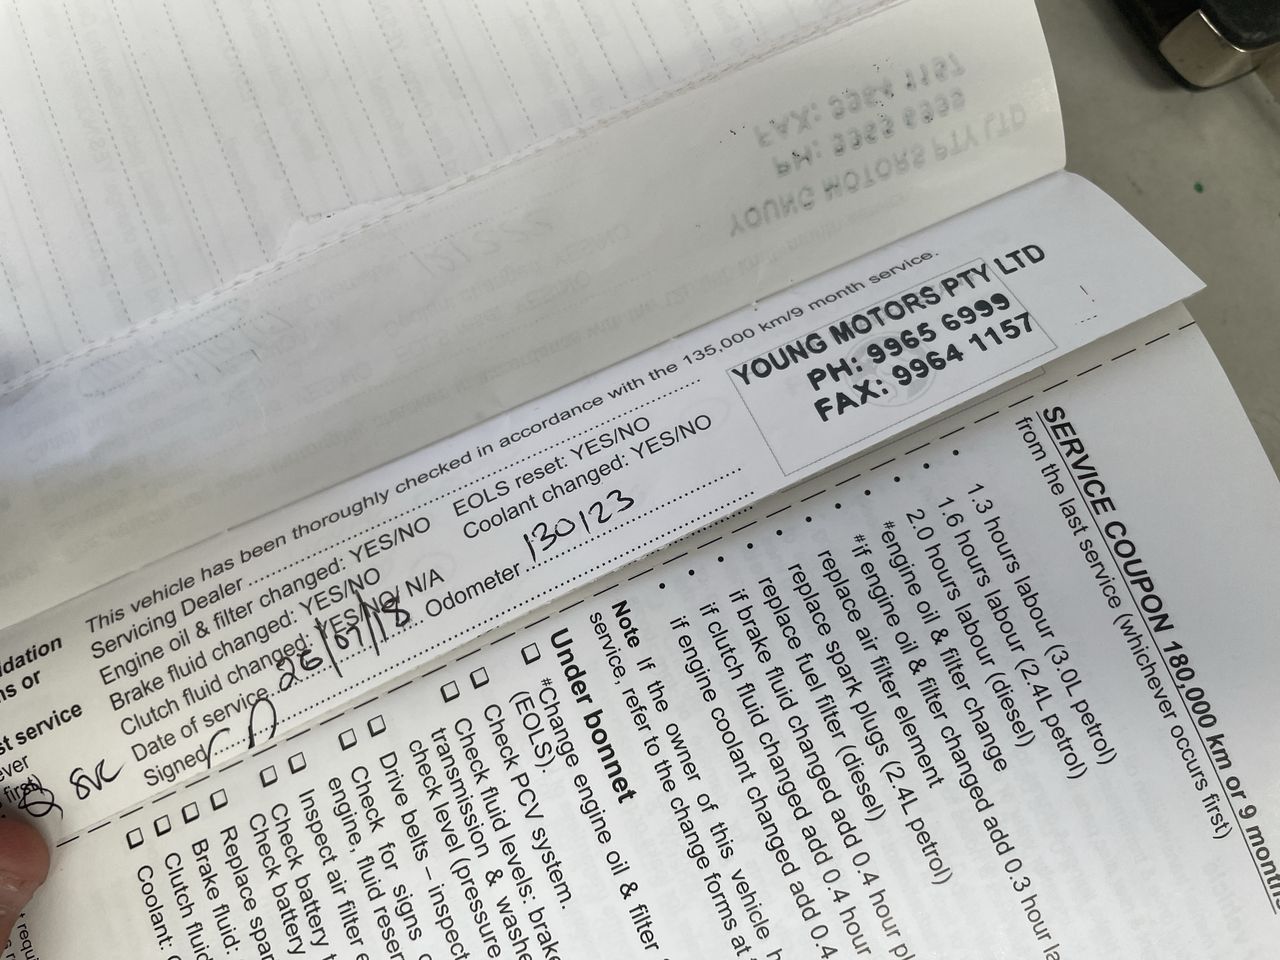 YOUNG MOTORS PTY LTD
PH: 9965 6999
FAX: 9964 1157
This vehicle has been thoroughly checked in accordance with the 135,000 km/9 month service.
Servicing Dealer
Engine oil & filter changed: YES/NO EOLS reset: YES/NO
Brake fluid changed: YES/NO Coolant changed: YES/NO
Clutch fluid changed: YES/NO/ N/A
Date of service 26/07/18 Odometer 130123
Signed
YOUNG MOTORS PTY LTD
PH: 9965 6999
FAX: 9964 1157
idation
ns or
st service
ever
first)
SVC
SERVICE COUPON 180,000 km or 9 months
from the last service (whichever occurs first)
• 1.3 hours labour (3.0L petrol)
• 1.6 hours labour (2.4L petrol)
• 2.0 hours labour (diesel)
• #engine oil & filter change
• #if engine oil & filter changed add 0.3 hour la
• replace air filter element
• replace spark plugs (2.4L petrol)
• replace fuel filter (diesel)
• if brake fluid changed add 0.4 hour pl
• if clutch fluid changed add 0.4 hour
• if engine coolant changed add 0.4
Note If the owner of this vehicle h
service, refer to the change forms at
Under bonnet
#Change engine oil & filter
(EOLS).
Check PCV system.
Check fluid levels: brake
transmission & washe
check level (pressure
Drive belts – inspect
Check for signs
engine, fluid reser
Inspect air filter
Check battery t
Check battery
Replace spar
Brake fluid:
Clutch fluid
Coolant: